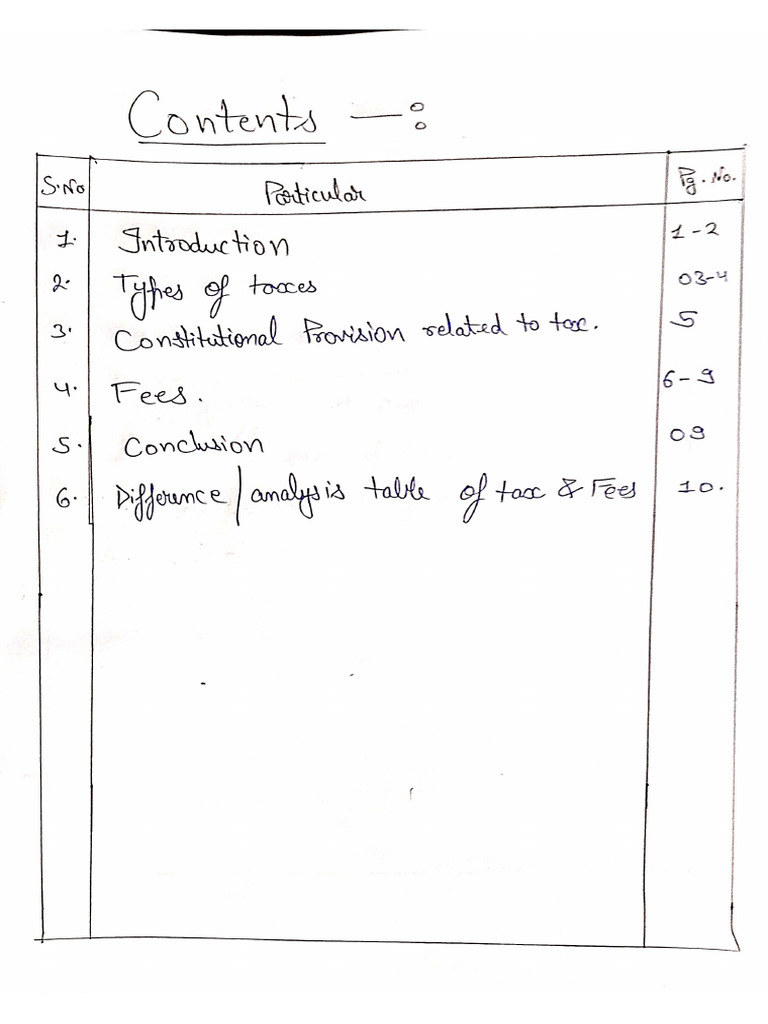 Contents —:
S.No Particular Pg. No.
1. Introduction 1-2
2. Types of taxes 03-4
3. Constitutional Provision related to tax. 5
4. Fees. 6-9
5. Conclusion 09
6. Difference/analysis table of tax & Fees 10.